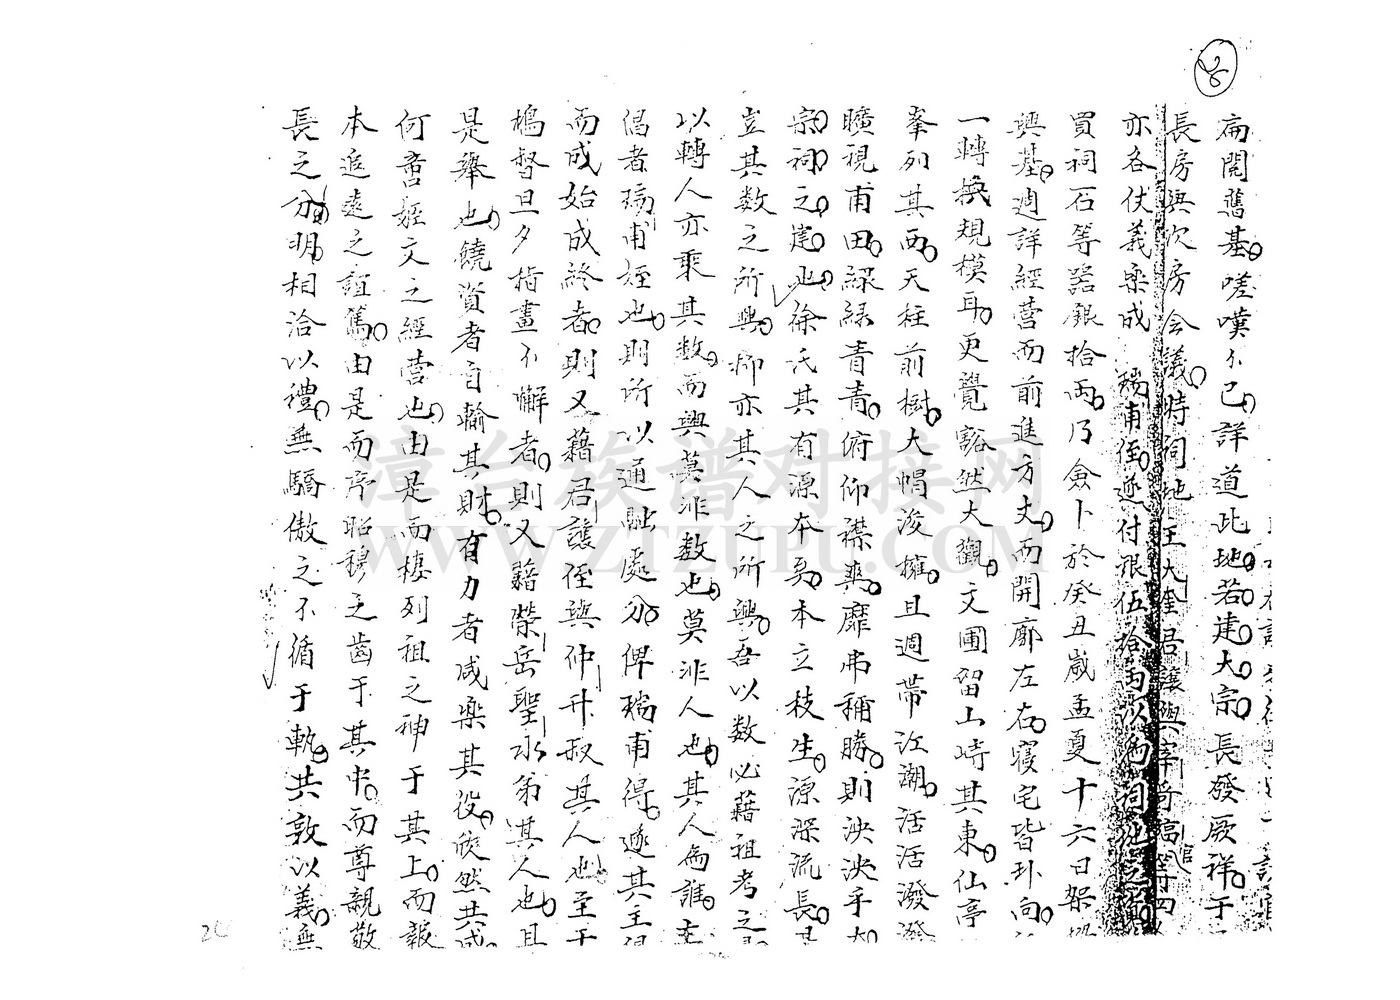 8
扁閱舊基嗟嘆不已詳道此地若建大宗長發厥祥于
長房與次房会議時祠地在大 君讓與 等四
亦各仗義樂成 瑞甫侄遂付銀伍拾両以為祠地之
買祠石等器銀拾両乃僉卜於癸丑歲孟夏十六日架
興基週詳經营而前進方丈両開廓左右寢宅皆卦向
一轉換規模耳更覺豁然大觀文圃留山時其東仙亭
峯列其西天柱前樹大帽浚擁且週帶江潮活活潑潑
曠視甫田綠綠青青俯仰襟爽靡弗稱勝則泱泱乎大
宗祠之崔也徐氏其有源本矣本立枝生源深流長
豈其数之所興抑亦其人之所興吾以数必藉祖考之
以轉人亦乘其数而興莫非数也莫非人也其人為誰
倡者瑞甫姪也則所以通融處分俾瑞甫得遂其主
而成始成終者則又藉君讓侄與仲升叔其人也至于
督旦夕指畫不懈者則又藉榮岳聖水弟其人也且
是舉也饒資者自輸其財有力者咸樂其役欣然共成
何啻姬文之經营也由是而棲列祖之神于其上而報
本追遠之誼篤由是而序昭穆之齒于其中而尊親敬
長之分明相洽以禮無驕傲之不循于軌共敦以義無
漳台族谱对接网
WWW.ZTZUPU.COM